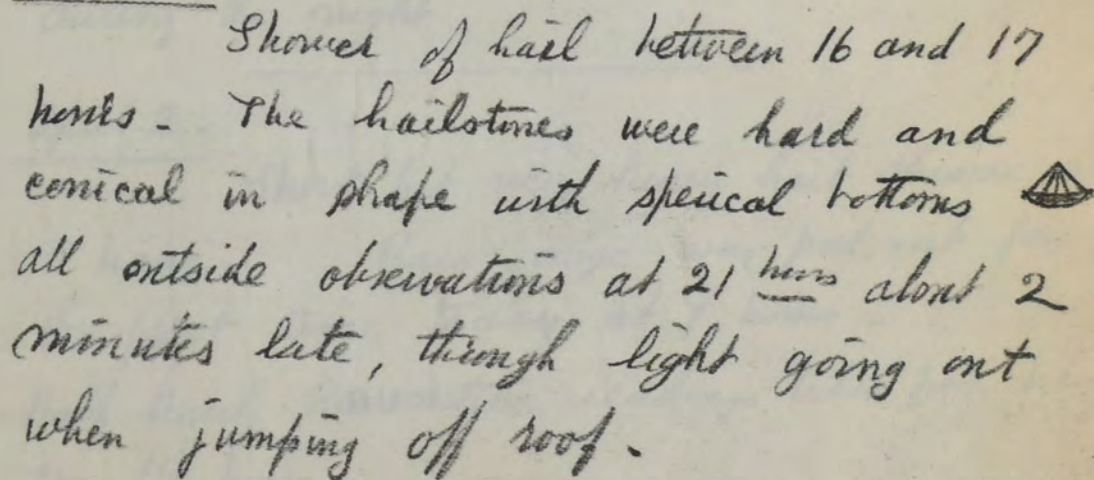 Shower of hail between 16 and 17
hours. The hailstones were hard and
conical in shape with sperical bottoms
all outside observations at 21 hrs about 2
minutes late, through light going out
when jumping off roof.